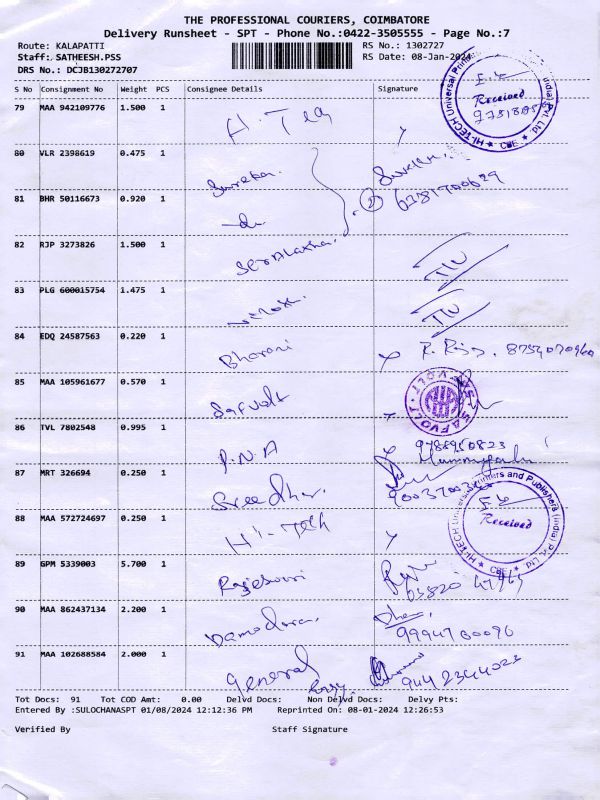 THE PROFESSIONAL COURIERS, COIMBATORE
Delivery Runsheet - SPT - Phone No.:0422-3505555 - Page No.:7
Route: KALAPATTI RS No.: 1302727
Staff: SATHEESH.PSS RS Date: 08-Jan-2024
DRS No.: DCJB130272707
S No Consignment No Weight PCS Consignee Details Signature
79 MAA 942109776 1.500 1 H. Tea Received
80 VLR 2398619 0.475 1 Surekha
81 BHR 50116673 0.920 1 do 2 6381700629
82 RJP 3273826 1.500 1
83 PLG 600015754 1.475 1
84 EDQ 24587563 0.220 1 Bharani 8754070960
85 MAA 105961677 0.570 1 Safvolt SAFVOLT
86 TVL 7802548 0.995 1 P.N.A 9788950823
87 MRT 326694 0.250 1 Sreedhar
88 MAA 572724697 0.250 1 Hi-Tech Received
HI-TECH Universal Printers and Publishers (India) Pvt. Ltd. CBE
89 GPM 5339003 5.700 1 Rajeswari
90 MAA 862437134 2.200 1 Damodara 9994760096
91 MAA 102688584 2.000 1 General 9442344023
Tot Docs: 91 Tot COD Amt: 0.00 Delvd Docs: Non Delvd Docs: Delvy Pts:
Entered By :SULOCHANASPT 01/08/2024 12:12:36 PM Reprinted On: 08-01-2024 12:26:53
Verified By Staff Signature